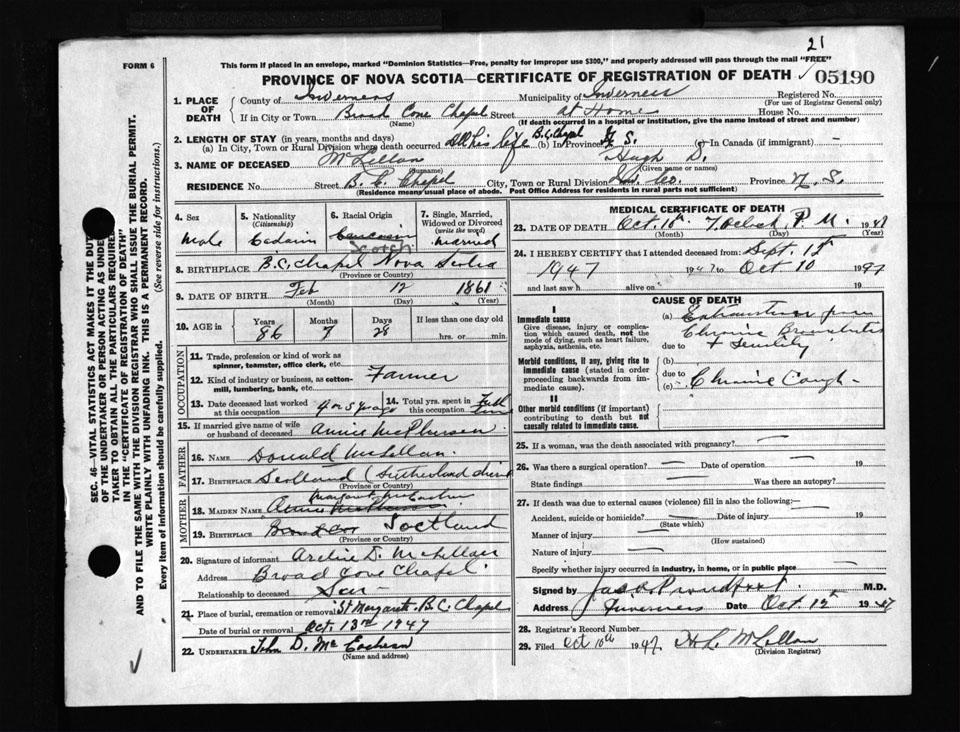 21
FORM 6
This form if placed in an envelope, marked "Dominion Statistics—Free, penalty for improper use $300," and properly addressed will pass through the mail "FREE"
PROVINCE OF NOVA SCOTIA—CERTIFICATE OF REGISTRATION OF DEATH 05190
1. PLACE OF DEATH County of Inverness Municipality of Inverness Registered No.
(For use of Registrar General only)
If in City or Town Broad Cove Chapel Street At Home House No.
(Name) (If death occurred in a hospital or institution, give the name instead of street and number)
2. LENGTH OF STAY (in years, months and days)
(a) In City, Town or Rural Division where death occurred All his life B.C. Chapel (b) in Province N. S. (c) in Canada (if immigrant) —
3. NAME OF DECEASED McLellan Hugh D.
(Surname) (Given name or names)
RESIDENCE No. Street B. C. Chapel City, Town or Rural Division Inv. Co. Province N. S.
(Residence means usual place of abode. Post Office Address for residents in rural parts not sufficient)
4. Sex
Male
5. Nationality (Citizenship)
6. Racial Origin
Scotch
7. Single, Married, Widowed or Divorced (write the word)
Married
8. BIRTHPLACE B.C. Chapel Nova Scotia
(Province or Country)
9. DATE OF BIRTH Feb 12 1861
(Month) (Day) (Year)
10. AGE in Years Months Days If less than one day old
86 7 28 hrs. or min.
OCCUPATION
11. Trade, profession or kind of work as spinner, teamster, office clerk, etc.
12. Kind of industry or business, as cotton-mill, lumbering, bank, etc. Farmer
13. Date deceased last worked at this occupation 4 or 5 yrs ago
14. Total yrs. spent in this occupation Full time
15. If married give name of wife or husband of deceased Annie McPherson
FATHER
16. NAME Donald McLellan
17. BIRTHPLACE Scotland
(Province or Country)
MOTHER
18. MAIDEN NAME Margaret McEachern
19. BIRTHPLACE Scotland
(Province or Country)
20. Signature of informant Archie D. McLellan
Address Broad Cove Chapel
Relationship to deceased Son
21. Place of burial, cremation or removal St Margarets B.C. Chapel
Date of burial or removal Oct. 13th 1947
22. UNDERTAKER John D. McEachern
(Name and address)
MEDICAL CERTIFICATE OF DEATH
23. DATE OF DEATH Oct. 10th 7 Oclock P. M. 1947
(Month) (Day) (Year)
24. I HEREBY CERTIFY that I attended deceased from: Sept. 12
1947 1947 to Oct 10 1947
and last saw h alive on 19
CAUSE OF DEATH
I
Immediate cause
Give disease, injury or complication which caused death, not the mode of dying, such as heart failure, asphyxia, asthenia, etc.
(a) Exhaustion from
Chronic Bronchitis
due to + Senility
Morbid conditions, if any, giving rise to immediate cause (stated in order proceeding backwards from immediate cause).
(b)
due to
(c) Chronic Cough
II
Other morbid conditions (if important) contributing to death but not causally related to immediate cause.
25. If a woman, was the death associated with pregnancy?
26. Was there a surgical operation? Date of operation 19
State findings Was there an autopsy?
27. If death was due to external causes (violence) fill in also the following:
Accident, suicide or homicide? Date of injury 19
(State which)
Manner of injury
(How sustained)
Nature of injury
Specify whether injury occurred in industry, in home, or in public place
Signed by Jas. Proudfoot M.D.
Address Inverness Date Oct. 12 1947
28. Registrar's Record Number
29. Filed Oct 10th 1947 H. L. McLellan
(Division Registrar)
SEC. 46—VITAL STATISTICS ACT MAKES IT THE DUTY
OF THE UNDERTAKER OR PERSON ACTING AS UNDERTAKER TO OBTAIN ALL THE PARTICULARS REQUIRED
IN THE "CERTIFICATE OF REGISTRATION OF DEATH"
AND TO FILE THE SAME WITH THE DIVISION REGISTRAR WHO SHALL ISSUE THE BURIAL PERMIT.
WRITE PLAINLY WITH UNFADING INK. THIS IS A PERMANENT RECORD.
Every item of information should be carefully supplied. (See reverse side for instructions.)